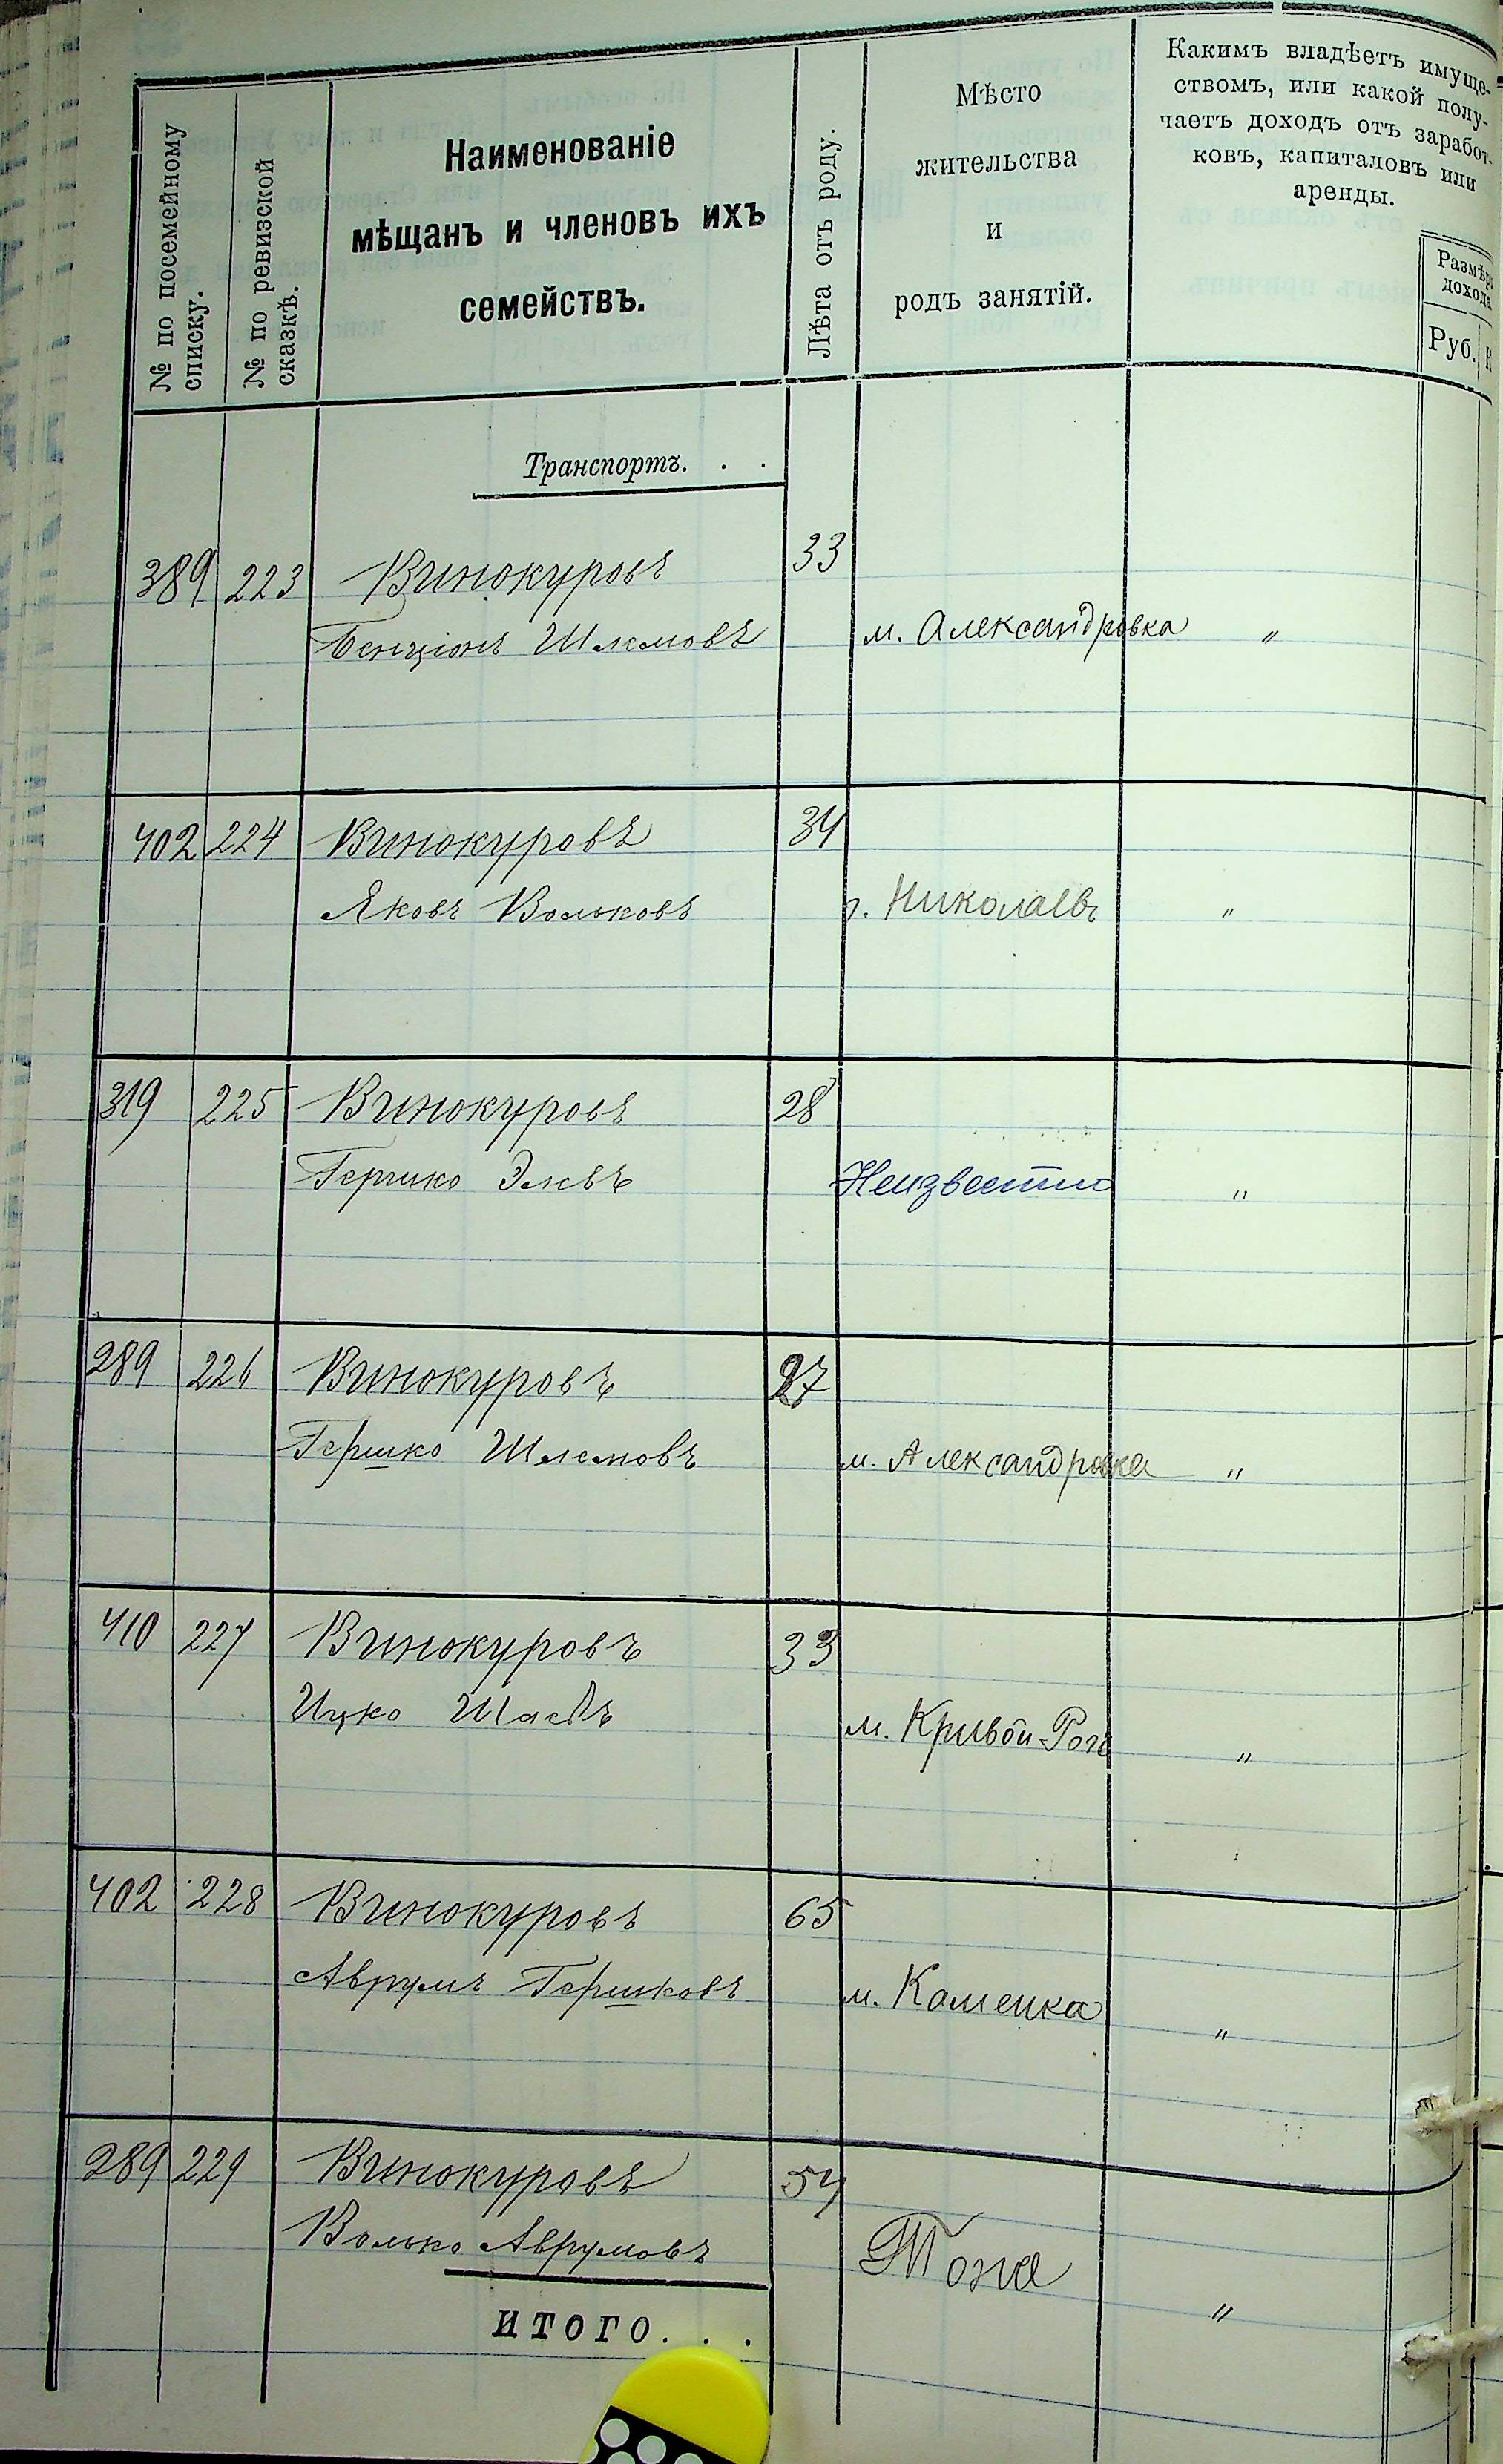 № по посемейному
списку.
№ по ревизской
сказкѣ.
Наименованіе
мѣщанъ и членовъ ихъ
семействъ.
Лѣта отъ роду.
Мѣсто
жительства
и
родъ занятій.
Какимъ владѣетъ имуще-
ствомъ, или какой полу-
чаетъ доходъ отъ заработ-
ковъ, капиталовъ или
аренды.
Размѣръ
дохода
Руб.
Транспортъ. . .
389 223 Винокуровъ 33
Бенціонъ Шлемовъ м. Александровка "
402 224 Винокуровъ 34
Яковъ Вольковъ г. Николаевъ "
319 225 Винокуровъ 28
Гершко Элевъ Неизвестно "
289 226 Винокуровъ 27
Гершко Шлемовъ м. Александровка "
410 227 Винокуровъ 33
Ицко м. Кривой-Рогъ "
402 228 Винокуровъ 65
Аврумъ Гершковъ м. Каменка "
289 229 Винокуровъ 54
Волько Аврумовъ "
ИТОГО. . .